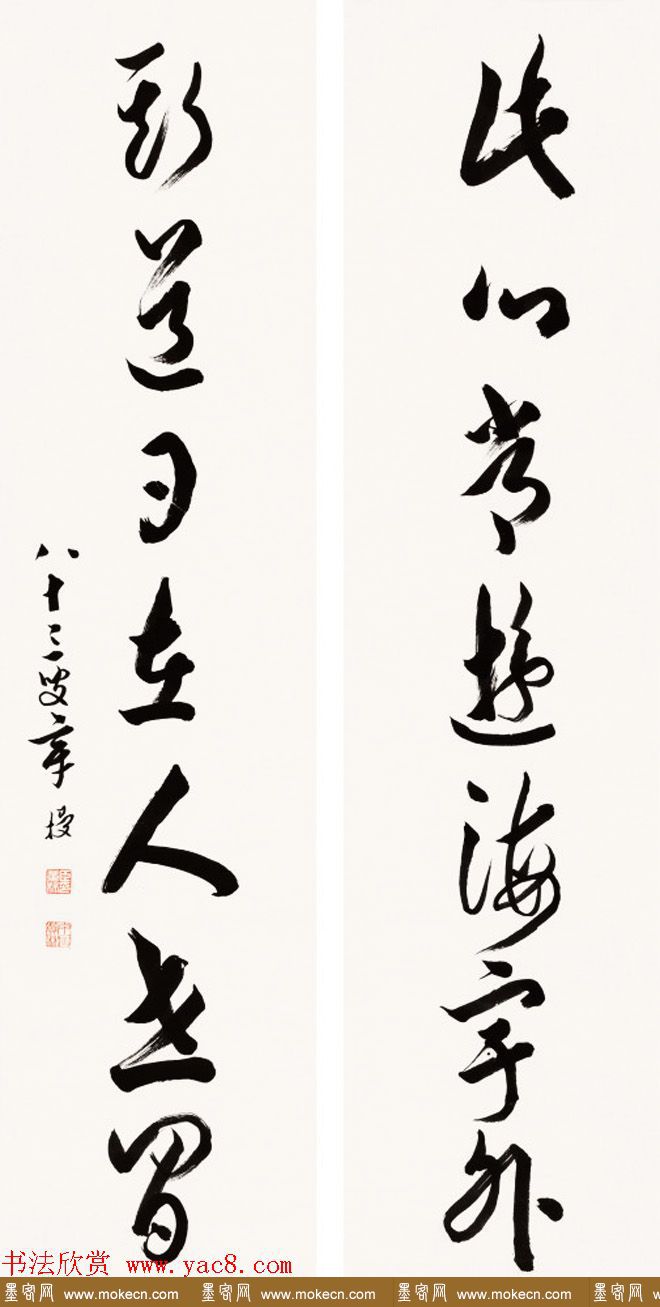 此心常遊海宇外
斯道日在人世間
八十三叟章梫
书法欣赏 www.yac8.com
墨客网 www.mokecn.com 墨客网 www.mokecn.com 墨客网 www.mokecn.com